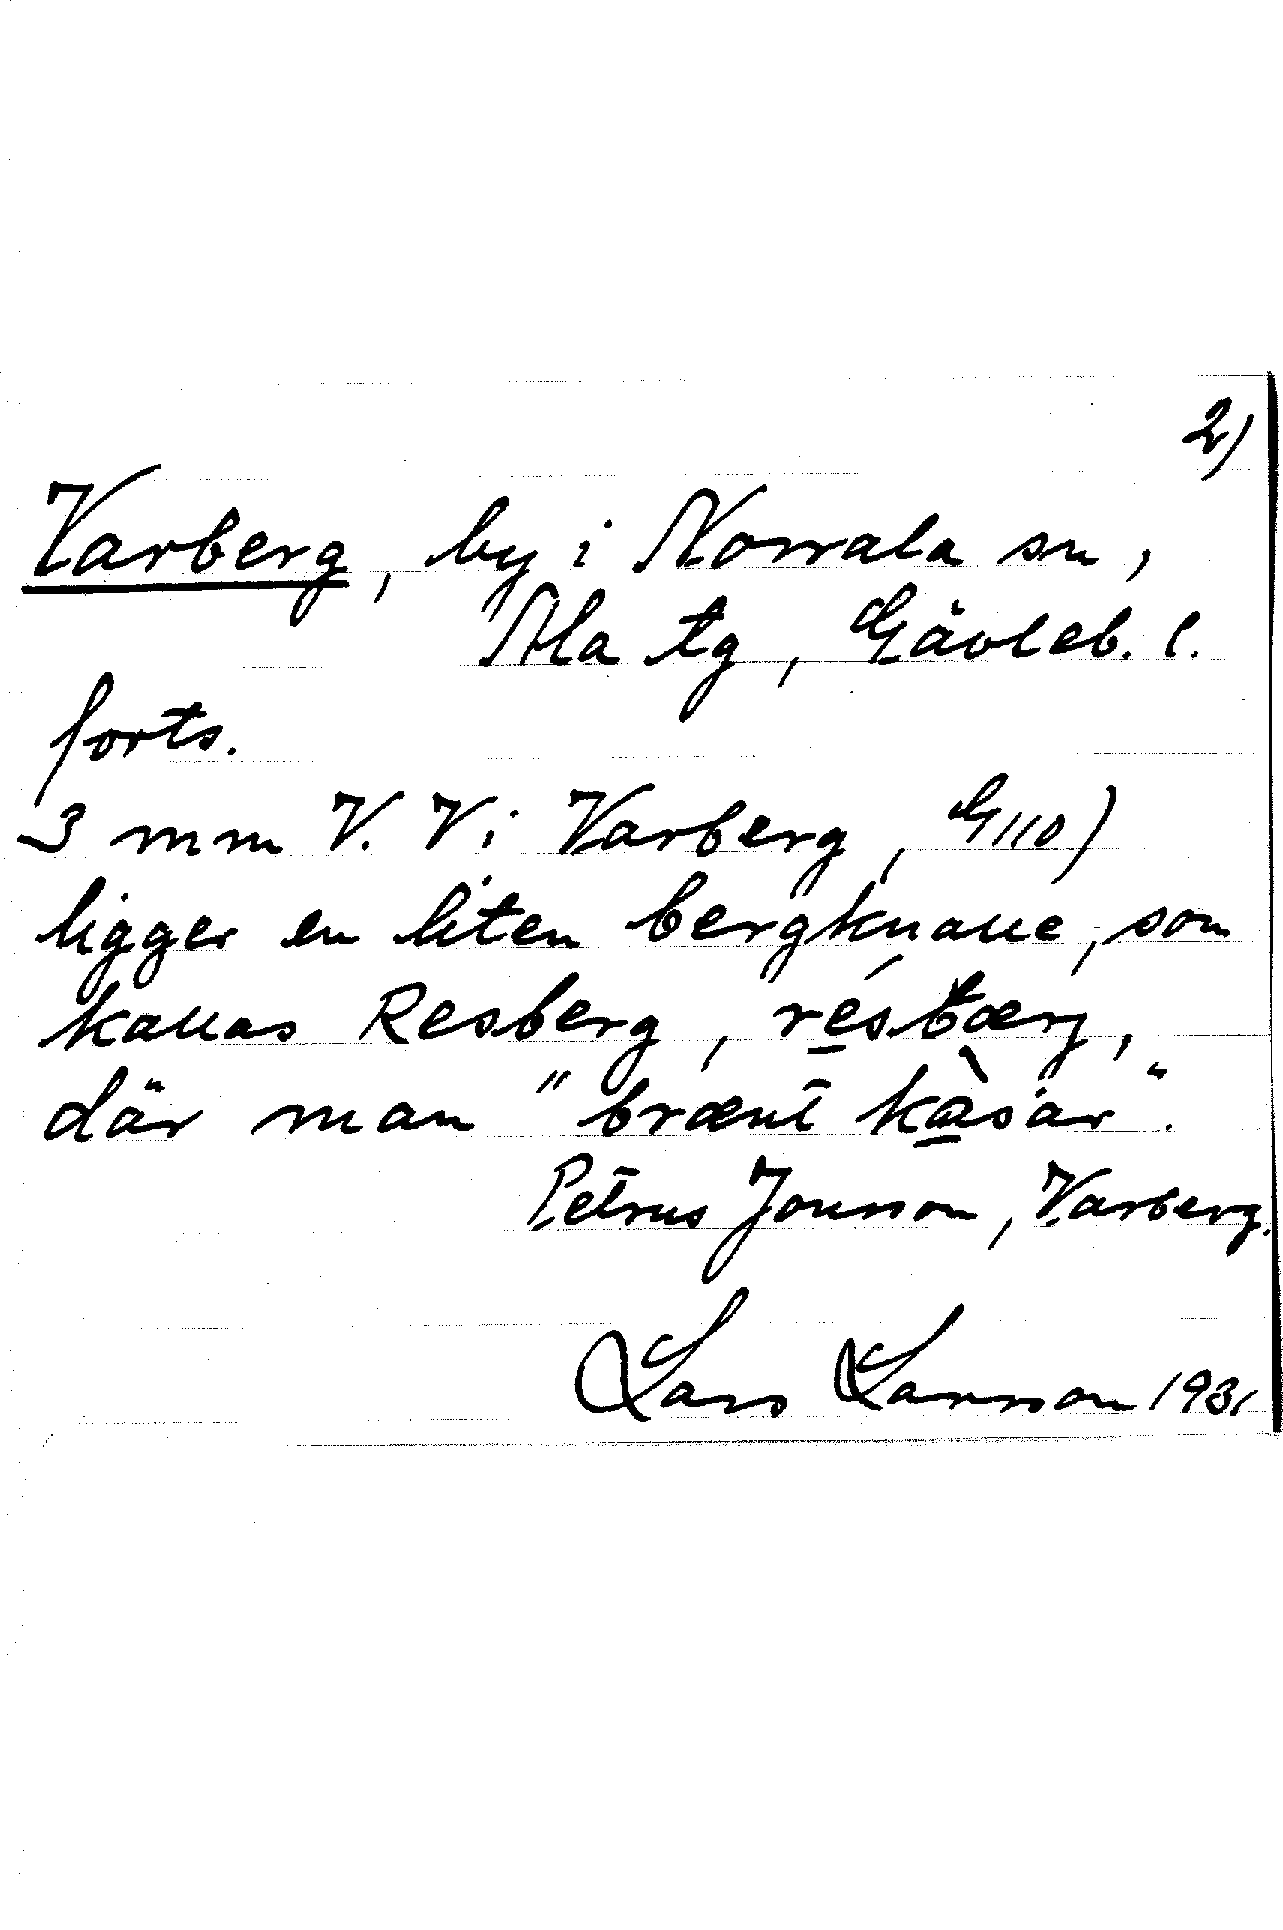 2)
Varberg, by i Norrala sn,
Ala tg, Gävleb. l.
forts.
3 mm V. V i Varberg, G110)
ligger en liten bergknalle, som
kallas Resberg, résbærj,
där man "brænt kàsar".
Petrus Jonsson, Varberg.
Lars Larsson 1931